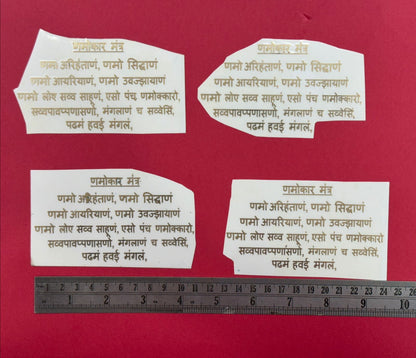 णमोकार मंत्र
णमो अरिहंताणं, णमो सिद्धाणं
णमो आयरियाणं, णमो उवज्झायाणं
णमो लोए सव्व साहूणं, एसो पंच णमोक्कारो,
सव्वपावप्पणासणो, मंगलाणं च सव्वेसिं,
पढमं हवई मंगलं,
णमोकार मंत्र
णमो अरिहंताणं, णमो सिद्धाणं
णमो आयरियाणं, णमो उवज्झायाणं
णमो लोए सव्व साहूणं, एसो पंच णमोक्कारो,
सव्वपावप्पणासणो, मंगलाणं च सव्वेसिं,
पढमं हवई मंगलं,
णमोकार मंत्र
णमो अरिहंताणं, णमो सिद्धाणं
णमो आयरियाणं, णमो उवज्झायाणं
णमो लोए सव्व साहूणं, एसो पंच णमोक्कारो,
सव्वपावप्पणासणो, मंगलाणं च सव्वेसिं,
पढमं हवई मंगलं,
णमोकार मंत्र
णमो अरिहंताणं, णमो सिद्धाणं
णमो आयरियाणं, णमो उवज्झायाणं
णमो लोए सव्व साहूणं, एसो पंच णमोक्कारो,
सव्वपावप्पणासणो, मंगलाणं च सव्वेसिं,
पढमं हवई मंगलं,
1 2 3 4 5 6 7 8 9 10